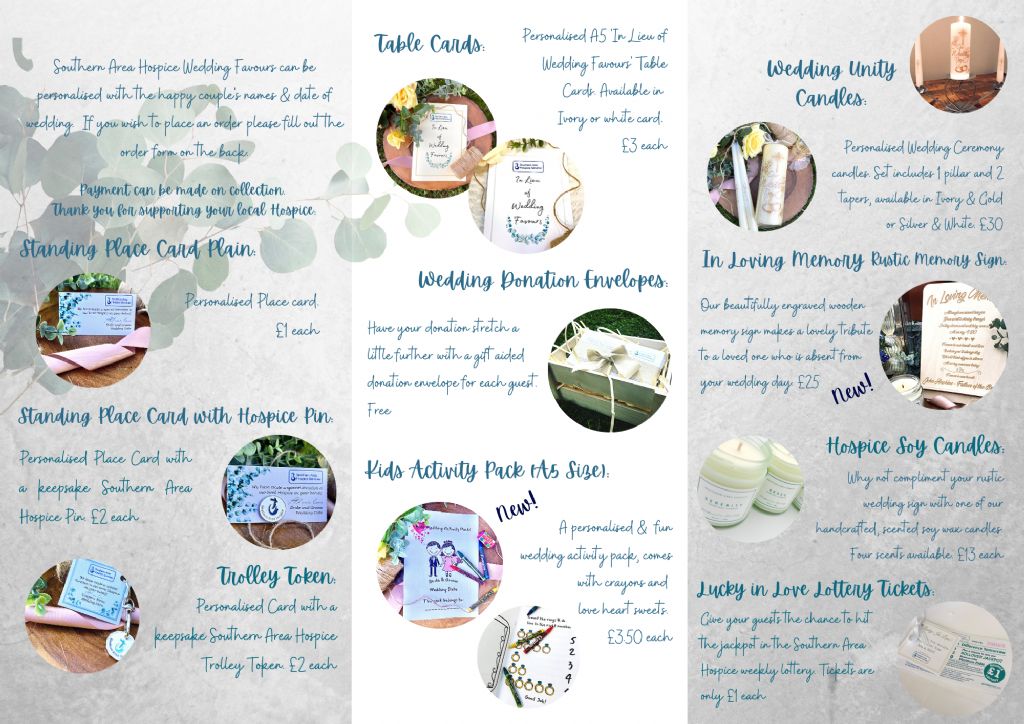 Southern Area Hospice Wedding Favours can be
personalised with the happy couple's names & date of
wedding. If you wish to place an order please fill out the
order form on the back.
Payment can be made on collection.
Thank you for supporting your local Hospice.
Standing Place Card Plain:
Personalised Place card.
£1 each
Standing Place Card with Hospice Pin:
Personalised Place Card with
a keepsake Southern Area
Hospice Pin. £2 each
Trolley Token:
Personalised Card with a
keepsake Southern Area Hospice
Trolley Token. £2 each
Table Cards:
Personalised A5 'In Lieu of
Wedding Favours' Table
Cards. Available in
Ivory or white card.
£3 each
In Lieu
of
Wedding
Favours
In Lieu
of
Wedding
Favours
Wedding Donation Envelopes:
Have your donation stretch a
little further with a gift aided
donation envelope for each guest.
Free
Kids Activity Pack (A5 Size):
New!
A personalised & fun
wedding activity pack, comes
with crayons and
love heart sweets.
£3.50 each
Wedding Activity Pack!
Bride & Groom
Wedding Date
This pack belongs to:
5
2
3
4
Good Job!
Wedding Unity
Candles:
Personalised Wedding Ceremony
candles. Set includes 1 pillar and 2
Tapers, available in Ivory & Gold
or Silver & White. £30
In Loving Memory Rustic Memory Sign:
Our beautifully engraved wooden
memory sign makes a lovely tribute
to a loved one who is absent from
your wedding day. £25
New!
In Loving
Hospice Soy Candles:
Why not compliment your rustic
wedding sign with one of our
handcrafted, scented soy wax candles.
Four scents available. £13 each
Lucky in Love Lottery Tickets:
Give your guests the chance to hit
the jackpot in the Southern Area
Hospice weekly lottery. Tickets are
only £1 each
£1